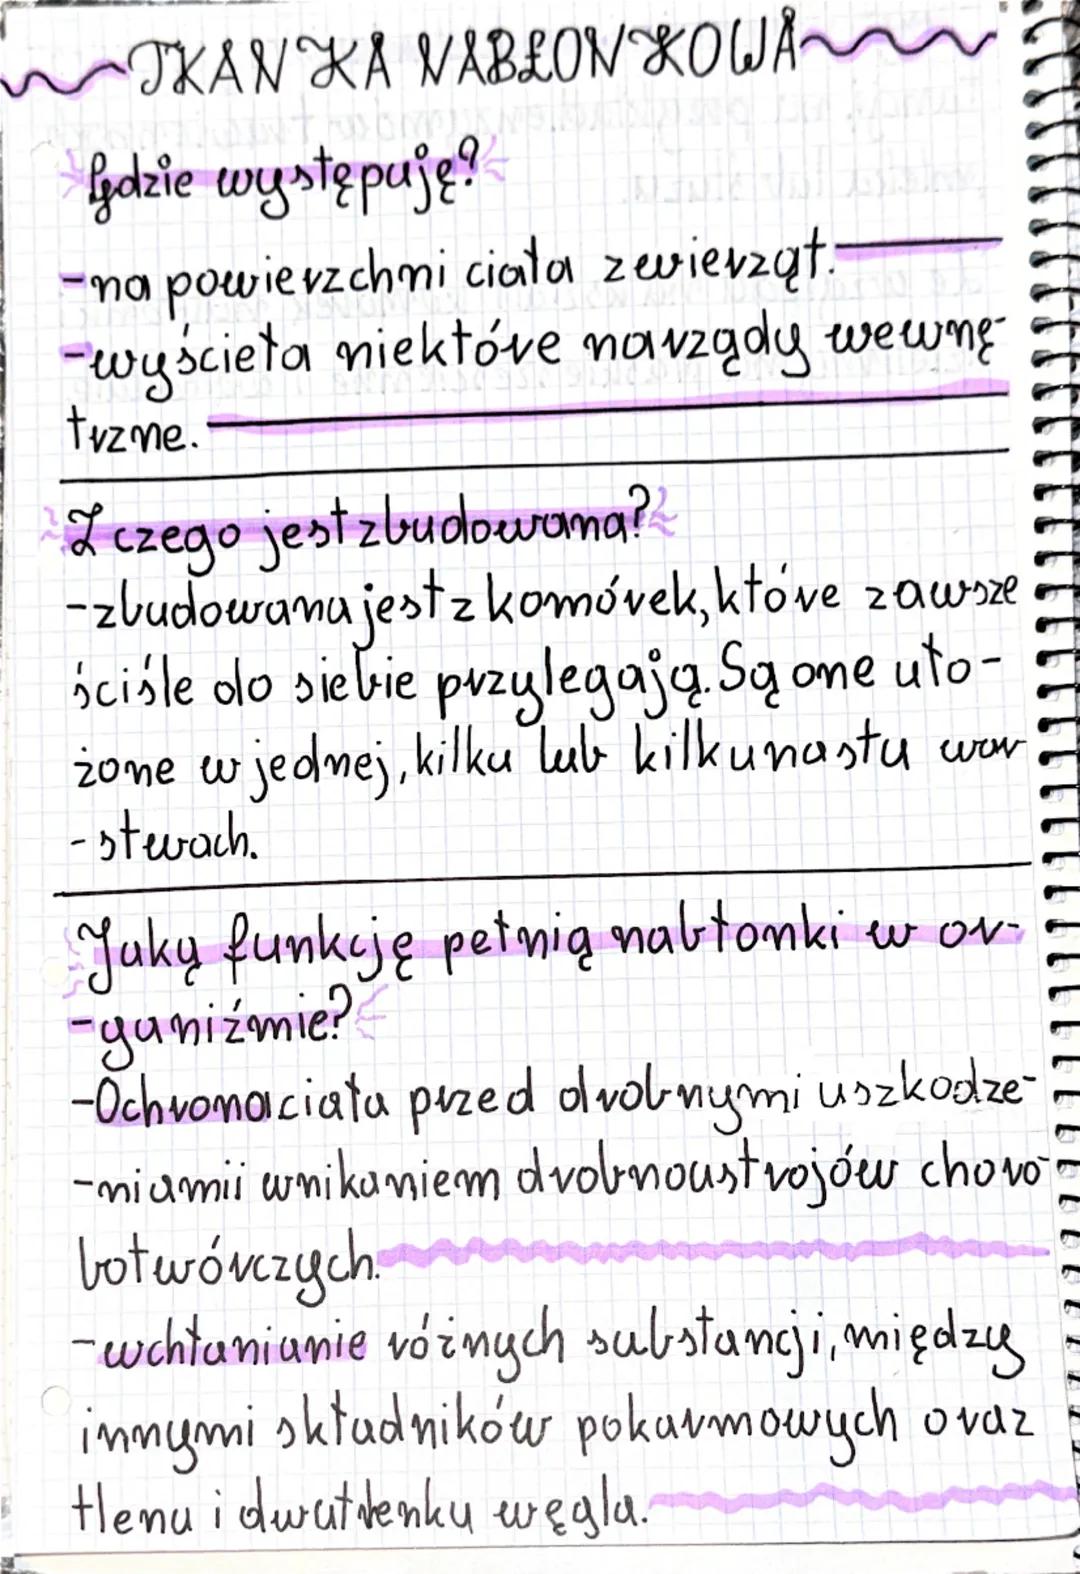 TKANKA NABŁONKOWA
Gdzie występuję?
-na powierzchni ciała zwierząt.
-wyścieła niektóre narządy wewnę-
trzne.
Z czego jest zbudowana?
-zbudowana jest z komórek, które zawsze
ściśle do siebie przylegają. Są one uło-
żone w jednej, kilku lub kilkunastu war
-stwach.
Jaką funkcję pełnią nabłonki w or-
-ganiźmie?
-Ochrona ciała przed drobnymi uszkodze-
-niami i wnikaniem drobnoustrojów choro-
botwórczych.
-wchłanianie różnych substancji, między
innymi składników pokarmowych oraz
tlenu i dwutlenku węgla.